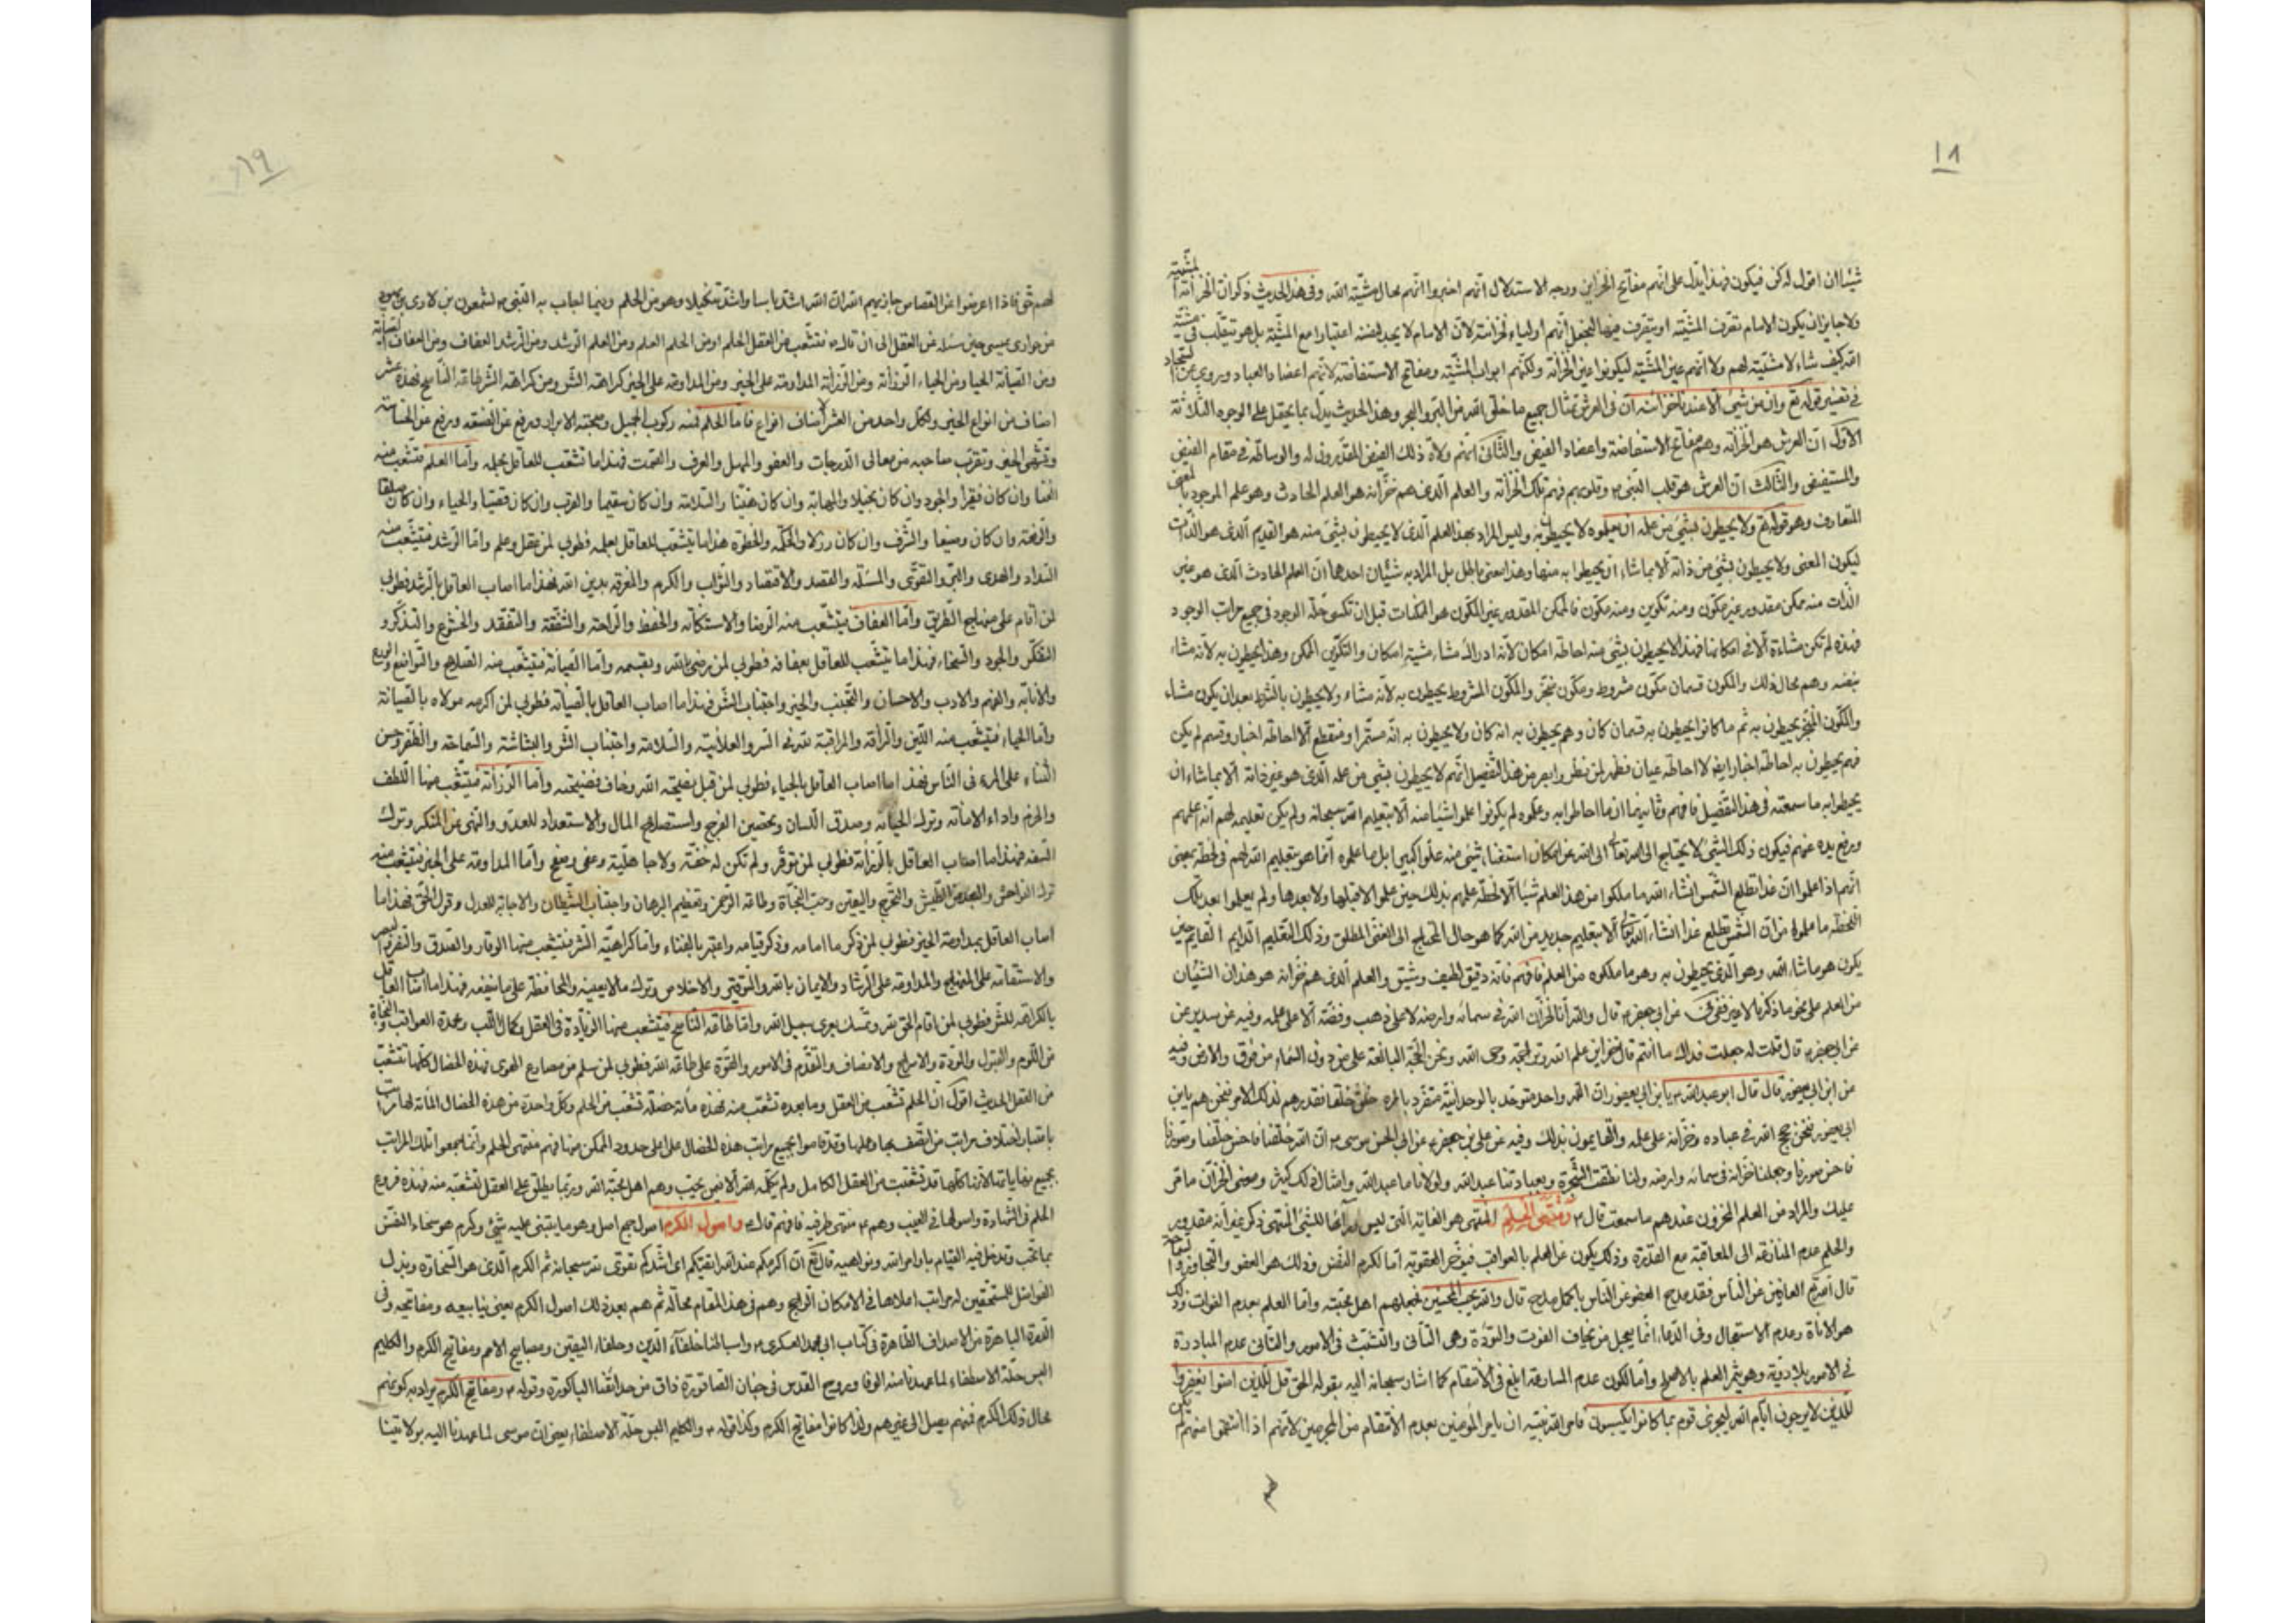 ١٨
شيئا ان اقول له كن فيكون فهذا يدل على انهم مفاتح الخزاين ووجه الاستدلال انهم اخبروا انهم محال مشية الله وفى هذا الحديث ذكر ان الخزانة المشية
ولا جايز ان يكون الامام تصرف المشية او يتصرف فيها لنجعل انهم اولياء لخزانته لان الامام لا يجد لنفسه اعتبارا مع المشية بل هو يتقلب فى مشية
الله كيف شاء لا مشية لهم ولا انهم عين المشية ليكونوا عين الخزانة ولكنهم ابواب المشية ومفاتح الاستفاضة لانهم اعضاد العباد وروى عن السجاد
فى تفسير قوله تع وان من شئ الا عندنا خزائنه ان فى العرش تمثال جميع ما خلق الله من البر والبحر وهذا الحديث يدل بما يحتمل على الوجوه الثلاثة
الاول ان العرش هو الخزانة وهم مفاتح الاستفاضة واعضاد الفيض والثانى انهم ولاة ذلك الفيض المقدرون له والوسائط فى مقام الفيض
والمستفيض والثالث ان العرش هو قلب النبى ص وقلوبهم فهم تلك الخزانة والعلم الذى هم خزانه هو العلم الحادث وهو علم الموجود بالمعنى
المتعارف وهو قوله تع ولا يحيطون بشئ من علمه ان يعلموه لا يحيطون به وليس المراد بهذا العلم الذى لا يحيطون بشئ منه هو القديم الذى هو الذات
ليكون المعنى ولا يحيطون بشئ من ذاته الا بما شاء ان يحيطوا به منها وهذا معنى باطل بل المراد به شيئان احدهما ان العلم الحادث الذى هو غير
الذات منه ممكن مقدور غير مكون ومنه تكوين ومنه مكون فالممكن المقدور غير المكون هو الممكنات قبل ان تكسى حلة الوجود فى جميع مراتب الوجود
فهذه لم تكن مشاءة الا فى امكانها فهذا لا يحيطون بشئ منه احاطة امكان لانه ادراك مشاء مشية امكان والتكوين الممكن وهذا يحيطون به لانه مشاء
بنفسه وهم محال ذلك والمكون قسمان مكون مشروط ومكون منجز والمكون المشروط يحيطون به لانه مشاء ولا يحيطون بالشرط بعد ان يكون مشاء
والمكون المنجز يحيطون به ثم ما كانوا يحيطون به قسمان كان وهم يحيطون به انه كان ولا يحيطون به انه مستمر او منقطع الا احاطة اخبار وقسم لم يكن
فهم يحيطون به احاطة اخبار ايضا لا احاطة عيان فظهر لمن نظر وابصر من هذا التفصيل انهم لا يحيطون بشئ من علمه الذى هو غير ذاته الا بما شاء ان
يحيطوا به ما سمعته فى هذا التفصيل فافهم وثانيهما ان ما احاطوا به وعلموه لم يكونوا علموا شيئا منه الا بتعليم الله سبحانه ولم يكن تعليمه لهم انه اعلمهم
ورفع يده عنهم فيكون ذلك الشئ لا يحتاج الى الله تعالى عن امكان استغناء شئ منه علوا كبيرا بل ما علموه انما هو بتعليم الله لهم فى لحظة بمعنى
انهم اذا علموا ان غدا تطلع الشمس انشاء الله ما ملكوا من هذا العلم شيئا الا لحظة علمهم بذلك حين علموا لا قبلها ولا بعدها ولم يعلموا بعد تلك
اللحظة ما علموا من ان الشمس تطلع غدا انشاء الله تع الا بتعليم جديد من الله كما هو حال المحتاج الى الغنى المطلق وذلك التعليم الدايم القايم حين
يكون هو ما شاء الله وهو الذى يحيطون به وهو ما ملكوه من العلم فافهم فانه دقيق لطيف وشيق والعلم الذى هم خزانه هو هذان الشيئان
من العلم على نحو ما ذكرنا لا غير ففى عن ابى جعفر ع قال والله انا لخزان الله فى سمائه وارضه لا على ذهب وفضة الا على علمه وفيه عن سدير عن
عن ابى جعفر ع قال قلت له جعلت فداك ما انتم قال نحن خزاين علم الله وتراجمة وحى الله ونحن الحجة البالغة على من دون السماء من فوق والارض وفيه
عن ابن ابى يعفور قال قال ابو عبد الله ع يا بن ابى يعفور ان الله واحد متوحد بالوحدانية متفرد بامره خلق خلقا فقدرهم لذلك الامر فنحن هم يا بن
ابى يعفور فنحن حجج الله فى عباده وخزانه على علمه والقايمون بذلك وفيه عن على بن جعفر ع عن ابى الحسن موسى ع ان الله خلقنا فاحسن خلقنا وصورنا
فاحسن صورنا وجعلنا خزانه فى سمائه وارضه ولنا نطقت الشجرة وبعبادتنا عبد الله ولولانا ما عبد الله وامثال ذلك كثير ومعنى الخزان ما مر
عليك والمراد من العلم المخزون عندهم ما سمعت قال ع ومنتهى الحلم المنتهى هو الغاية التى ليس وراءها للشئ المنتهى ذكر غير انه مقدور
والحلم عدم المنازعة الى المعاقبة مع القدرة وذلك يكون عن العلم بالعواقب فيؤخر العقوبة اما لكرم النفس وذلك هو العفو والتجاوز
قال تع والعافين عن الناس فقد مدح العفو عن الناس باكمل مدح قال والله يحب المحسنين فجعلهم اهل محبته واما العلم بعدم الفوات وذلك
هو الاناة وعدم الاستعجال وفى الدعاء انما يعجل من يخاف الفوت والتؤدة وهى التأنى والتثبت فى الامور والتأنى عدم المبادرة
فى الامور بلا روية وهو يثمر العلم بالاصلح واما لكون عدم المسارعة ابلغ فى الانتقام كما اشار سبحانه اليه بقوله الحق قل للذين امنوا يغفروا
للذين لا يرجون ايام الله ليجزى قوما بما كانوا يكسبون فامر الله نبيه ان يامر المؤمنين بعدم الانتقام من المجرمين لانهم اذا انتقموا منهم لم يكن
١٩
لهم شئ فاذا اعرضوا عن القصاص جازيهم الله ان الله اشد باسا واشد تنكيلا وهو من الحلم وفيما اجاب به النبى ص لشمعون بن لاوى بن يهودا
من حوارى عيسى حين سئله عن العقل الى ان قال ص فتشعب من العقل الحلم ومن الحلم العلم ومن العلم الرشد ومن الرشد العفاف ومن العفاف الصيانة
ومن الصيانة الحياء ومن الحياء الرزانة ومن الرزانة المداومة على الخير ومن المداومة على الخير كراهة الشر ومن كراهة الشر طاعة الناصح فهذه عشر
اصناف من انواع الخير ولكل واحد من العشرة اصناف انواع فاما الحلم فمنه ركوب الجميل وصحبة الابرار ورفع عن الضعة ورفع عن الخساسة
وتشهى الخير وتقرب صاحبه من معالى الدرجات والعفو والمهل والعرف والصمت فهذا ما تشعب للعاقل بحلمه واما العلم فتشعب منه
الغنا وان كان فقيرا والجود وان كان بخيلا والمهابة وان كان هينا والسلامة وان كان سقيما والقرب وان كان قصيا والحياء وان كان صلفا
والرفعة وان كان وضيعا والشرف وان كان رذلا والحكمة والحظوة فهذا ما يتشعب للعاقل بعلمه فطوبى لمن عقل وعلم واما الرشد فيتشعب منه
السداد والهدى والبر والتقوى والمسئلة والقصد والاقتصاد والثواب والكرم والمعرفة بدين الله فهذا ما اصاب العاقل بالرشد فطوبى
لمن اقام على منهاج الطريق واما العفاف فيتشعب منه الرضا والاستكانة والحفظ والراحة والشفقة والتفقد والخشوع والتذكر و
التفكر والجود والسخاء فهذا ما يتشعب للعاقل بعفافه فطوبى لمن رضى بالله وبقسمه واما الصيانة فيتشعب منه الصلاح والتواضع والورع
والانابة والفهم والادب والاحسان والتحبب والخير واجتناب الشر فهذا ما اصاب العاقل بالصيانة فطوبى لمن اكرمه مولاه بالصيانة
واما الحياء فيتشعب منه اللين والرأفة والمراقبة لله فى السر والعلانية والسلامة واجتناب الشر والبشاشة والسماحة والظفر وحسن
الثناء على المرء فى الناس فهذا ما اصاب العاقل بالحياء فطوبى لمن قبل نصيحة الله وخاف فضيحته واما الرزانة فيتشعب منها اللطف
والحزم واداء الامانة وترك الخيانة وصدق اللسان وتحصين الفرج واستصلاح المال والاستعداد للعدو والنهى عن المنكر وترك
السفه فهذا ما اصاب العاقل بالرزانة فطوبى لمن توقر ولم تكن له خفة ولا جاهلية وعفى وصفح واما المداومة على الخير فيتشعب منه
ترك الفواحش والبعد من الطيش والتحرج واليقين وحب النجاة وطاعة الرحمن وتعظيم البرهان واجتناب الشيطان والاجابة للعدل وقول الحق فهذا ما
اصاب العاقل بمداومة الخير فطوبى لمن ذكر ما امامه وذكر قيامه واعتبر بالفناء واما كراهية الشر فيتشعب منها الوقار والصبر والنصر
والاستقامة على المنهاج والمداومة على الرشاد والايمان بالله والتوفير والاخلاص وترك ما لا يعنيه والمحافظة على ما ينفعه فهذا ما اصاب العاقل
بالكراهة للشر فطوبى لمن اقام الحق لله وتمسك بعرى سبيل الله واما طاعة الناصح فيتشعب منها الزيادة فى العقل وكمال اللب ومحمدة العواقب والنجاة
من اللوم والقبول والمودة والاسراج والانصاف والتقدم فى الامور والقوة على طاعة الله فطوبى لمن سلم من مصارع الهوى فهذه الخصال كلها تتشعب
من العقل الحديث اقول ان الحلم تشعب من العقل وما بعده تشعب منه فهذه مأئة خصلة تشعب من الحلم وكل واحدة من هذه الخصال المأئة لها مراتب
باعتبار اختلاف مراتب من اتصف بها وهم ع قد قاموا بجميع مراتب هذه الخصال على اعلى حدود الممكن منها فهم منتهى الحلم وانما جمعوا تلك المراتب
بجميع نهاياتها لانها كلها قد تشعبت من العقل الكامل ولم يكمله الله الا فيمن يحب وهم اهل محبة الله وربما يطلق على العقل لتشعبه منه فهذه فروع
الحلم فى الشهادة واصولها فى الغيب وهم ع منتهى طرفيه فافهم قال ع واصول الكرم اصول جمع اصل وهو ما يبتنى عليه شئ وكرم هو سخاء النفس
بما تحب وتدخل فيه القيام باوامر الله ونواهيه قال تع ان اكرمكم عند الله اتقيكم اى اشدكم تقوى لله سبحانه ثم الكرم الذى هو السخاوة وبذل
الفواضل للمستحقين له مراتب اعلاها فى الامكان الراجح وهم فى هذا المقام محاله ثم هم بعد ذلك اصول الكرم يعنى ينابيعه ومفاتيحه وفى
الدرة الباهرة من الاصداف الطاهرة فى كتاب ابى محمد العسكرى ع واسباطنا خلفاء الدين وحلفاء اليقين ومصابيح الامم ومفاتيح الكرم والكليم
البس حلة الاصطفاء لما عهدنا منه الوفا وروح القدس فى جنان الصاقورة ذاق من حدائقنا الباكورة وقوله ع ومفاتيح الكرم يراد به كونهم
محال ذلك الكرم فمنهم يصل الى غيرهم ولذا كانوا مفاتيح الكرم وكذا قوله ع والكليم البس حلة الاصطفاء يعنى ان موسى لما عهدنا اليه بولايتنا